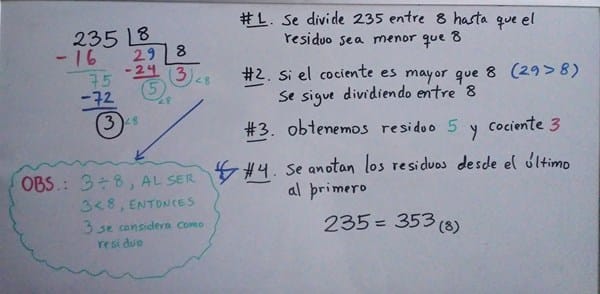 235 | 8
-16 29 | 8
75 -24 3 <8
-72 5 <8
3 <8
OBS.: 3 ÷ 8, AL SER
3 < 8, ENTONCES
3 se considera como
residuo
#1. Se divide 235 entre 8 hasta que el
residuo sea menor que 8
#2. Si el cociente es mayor que 8 (29 > 8)
Se sigue dividiendo entre 8
#3. Obtenemos residuo 5 y cociente 3
#4. Se anotan los residuos desde el último
al primero
235 = 353 (8)